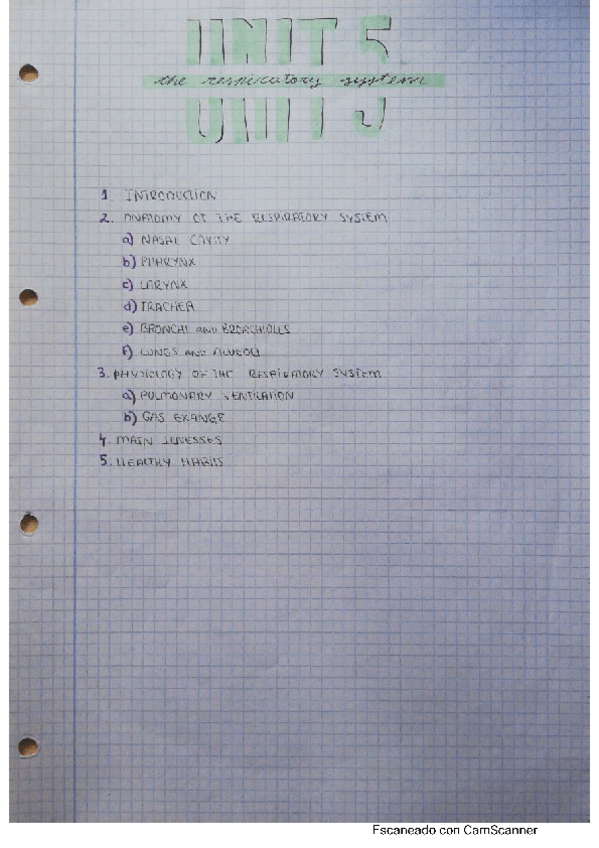 UNIT 5
the respiratory system
1. INTRODUCTION
2. ANATOMY OF THE RESPIRATORY SYSTEM
a) NASAL CAVITY
b) PHARYNX
c) LARYNX
d) TRACHEA
e) BRONCHI AND BRONCHIOLES
f) LUNGS AND ALVEOLI
3. PHYSIOLOGY OF THE RESPIRATORY SYSTEM
a) PULMONARY VENTILATION
b) GAS EXANGE
4. MAIN ILNESSES
5. HEALTHY HABITS
Escaneado con CamScanner